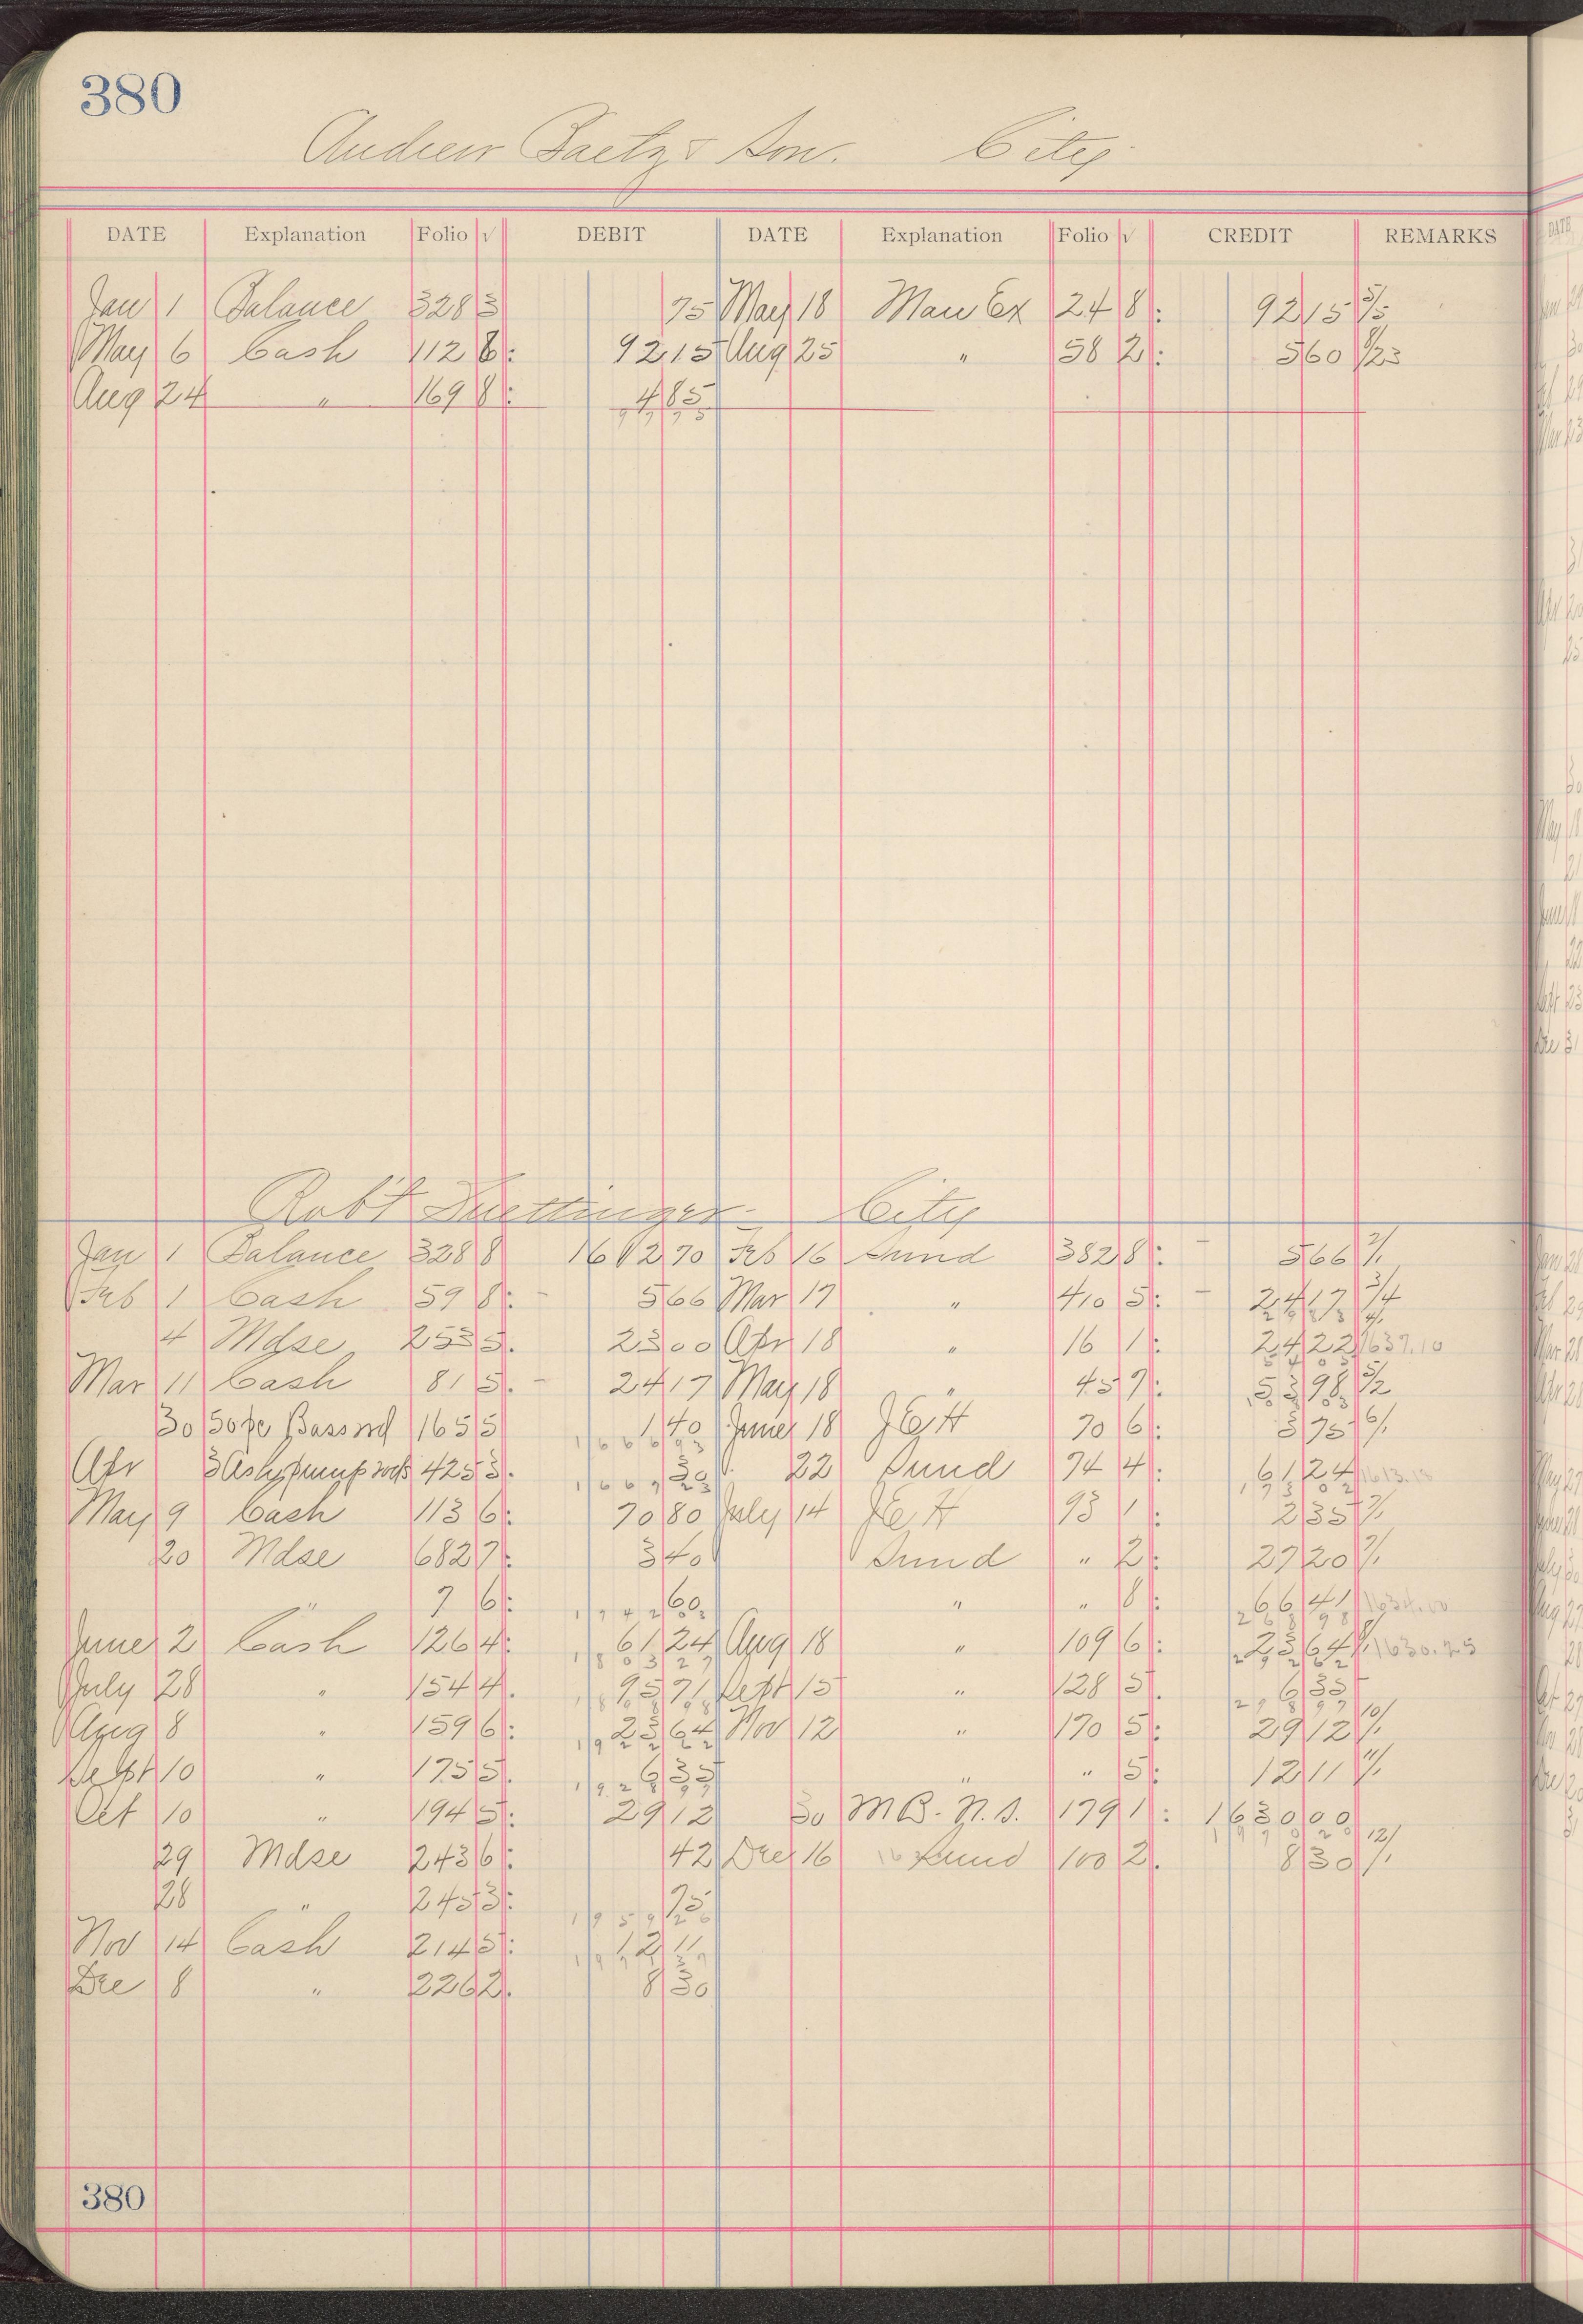 380
Andrew Baetz & Son. City
DATE Explanation Folio √ DEBIT DATE Explanation Folio √ CREDIT REMARKS
Jan 1 Balance 328 3 75 May 18 Man Ex 24 8 92 15 5/5
May 6 Cash 112 6 92 15 Aug 25 " 58 2 5 60 8/23
Aug 24 " 169 8 4 85
97 75
Rob't Huettinger City
Jan 1 Balance 328 8 1612 70 Feb 16 Sund 382 8 5 66 2/1
Feb 1 Cash 59 8 5 66 Mar 17 " 410 5 24 17 3/4
4 Mdse 253 5 23 00 Apr 18 " 16 1 24 22 1637.10
Mar 11 Cash 81 5 24 17 May 18 " 45 9 53 98 5/2
30 50 pc Basswd 165 5 1 40 June 18 J E H 70 6 3 75 6/1
1666 93
Apr 3 Ash pump rods 425 3 30 22 Sund 74 4 61 24 1613.15
1667 23
May 9 Cash 113 6 70 80 July 14 J E H 93 1 2 35 7/1
20 Mdse 682 7 3 40 Sund " 2 27 20 7/1
" 7 6 60 " " 8 66 41 1634.10
June 2 Cash 126 4 61 24 Aug 18 " 109 6 23 64 1630.25
1803 27
July 28 " 154 4 95 71 Sept 15 " 128 5 6 35
Aug 8 " 159 6 23 64 Nov 12 " 170 5 29 12 10/1
1922 62
Sept 10 " 175 5 6 35 " " 5 12 11 11/1
Oct 10 " 194 5 29 12 30 M B. N. S. 179 1 1630 00
29 Mdse 243 6 42 Dec 16 Sund 100 2 8 30 12/1
28 " 245 3 75
Nov 14 Cash 214 5 12 11
Dec 8 " 226 2 8 30
380